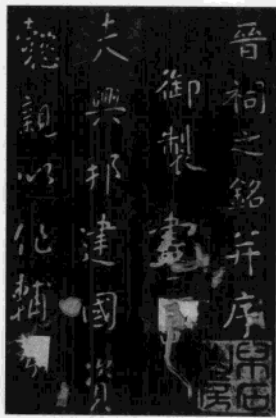 晉祠之銘并序
御製
夫興邦建國資
懿親以作輔